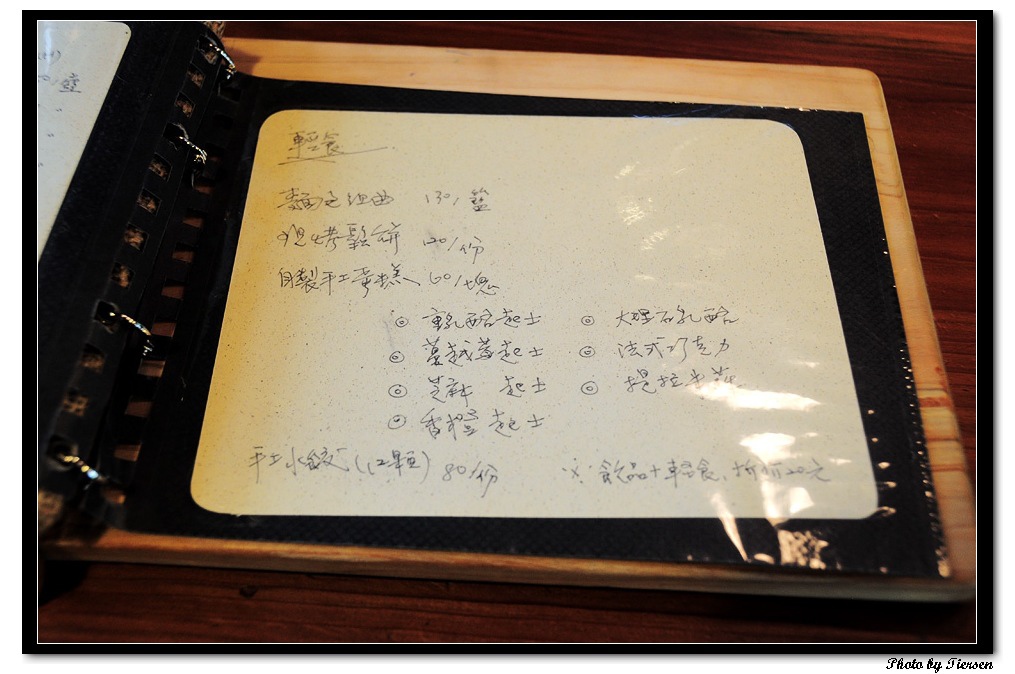 籃
輕食
麵包組曲 130/籃
現烤鬆餅 120/份
自製手工蛋糕 60/塊
◎ 重乳酪起士 ◎ 大理石乳酪
◎ 蔓越莓起士 ◎ 法式巧克力
◎ 芝麻 起士 ◎ 提拉米蘇
◎ 香橙起士
手工水餃 (12顆) 80/份 ※ 飲品+輕食,折價20元
Photo by Tiersen